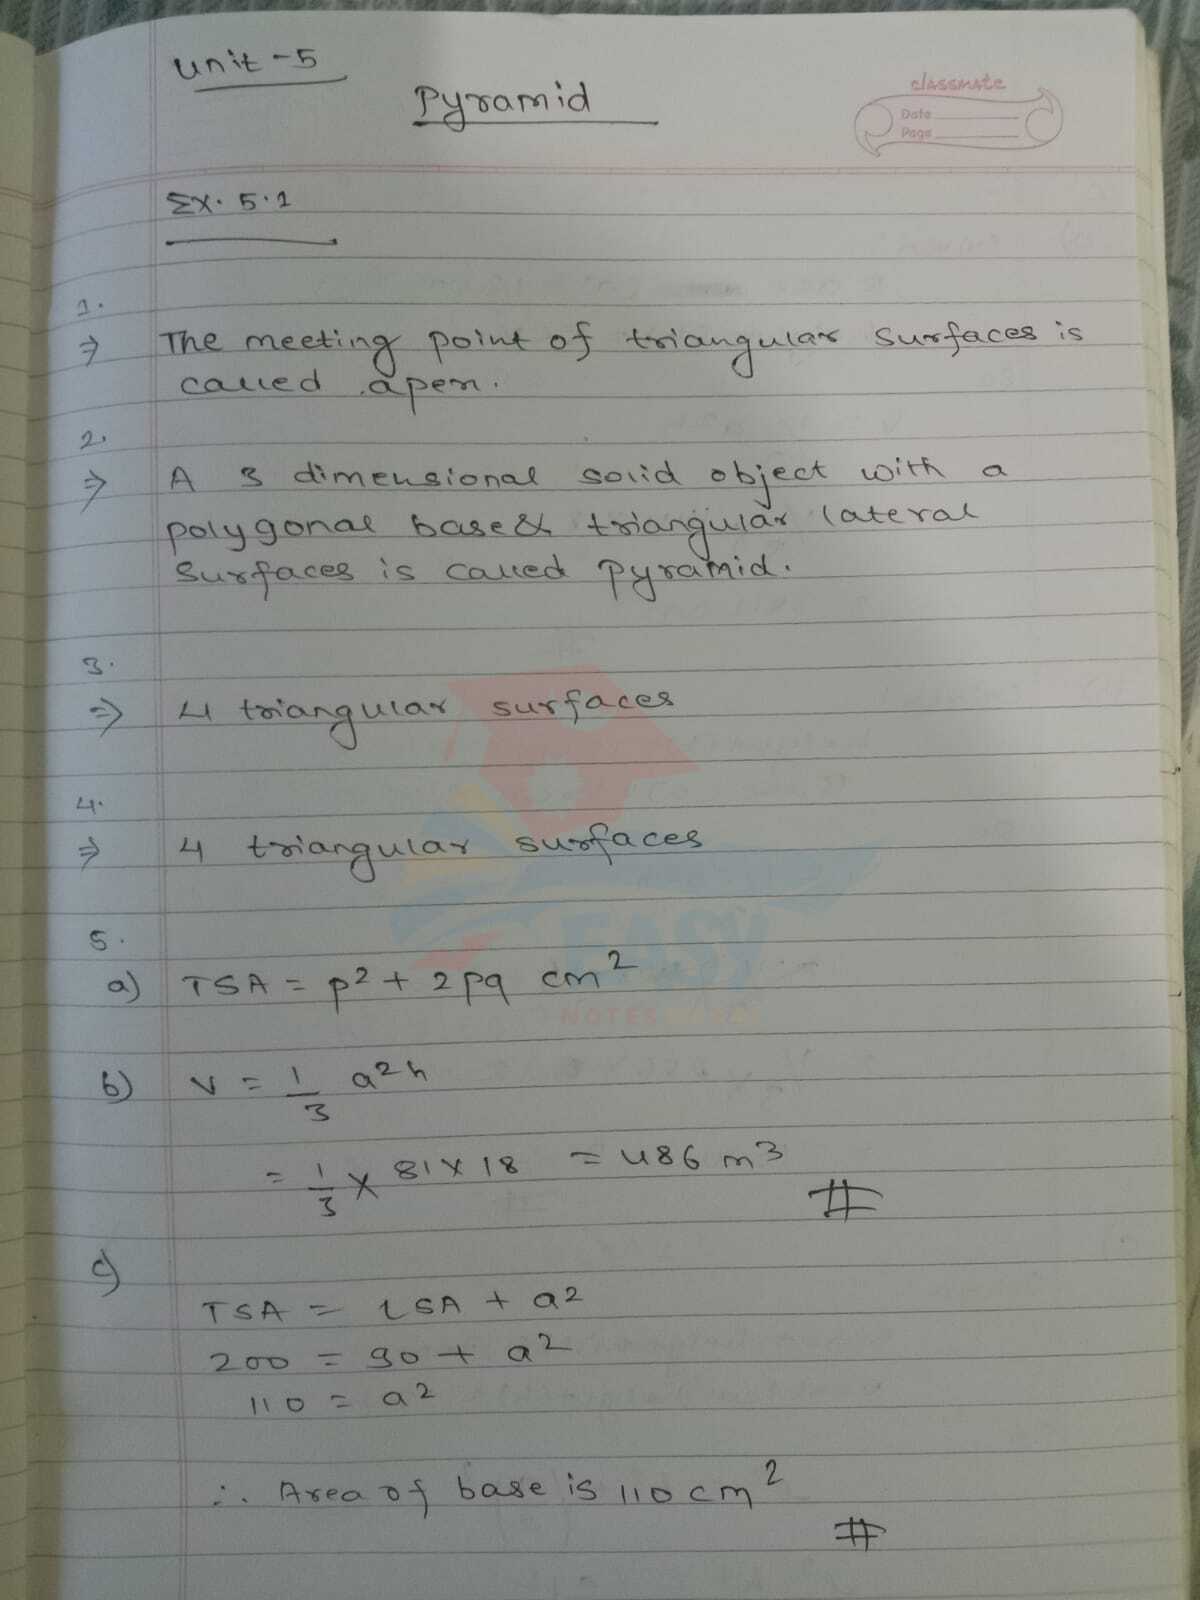 Unit-5
Pyramid
classmate
Date
Page
Ex. 5.1
1.
⇒ The meeting point of triangular surfaces is
called apex.
2.
⇒ A 3 dimensional solid object with a
polygonal base & triangular lateral
surfaces is called pyramid.
3.
⇒ 4 triangular surfaces
4.
⇒ 4 triangular surfaces
EASY
NOTES
5.
a) TSA = p² + 2pq cm²
b) V = 1/3 a²h
= 1/3 × 81 × 18 = 486 m³
#
c)
TSA = LSA + a²
200 = 90 + a²
110 = a²
∴ Area of base is 110 cm²
#